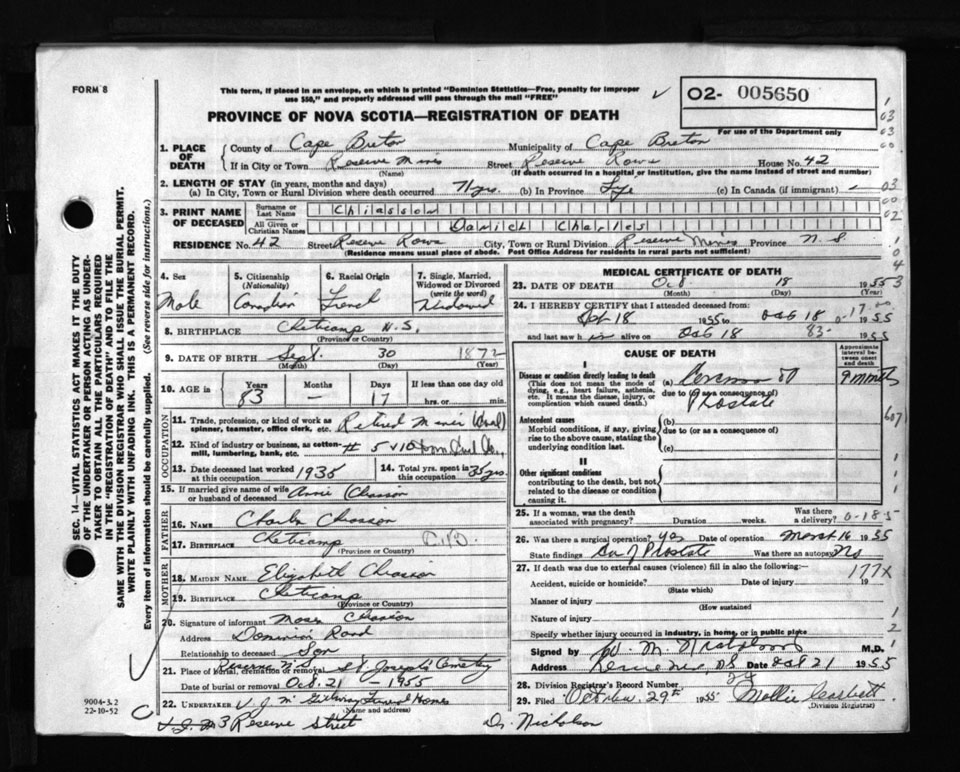 FORM 8
This form, if placed in an envelope, on which is printed "Dominion Statistics—Free, penalty for improper
use $50," and properly addressed will pass through the mail "FREE"
✓
O2- 005650
For use of the Department only
PROVINCE OF NOVA SCOTIA—REGISTRATION OF DEATH
1. PLACE OF DEATH
County of Cape Breton Municipality of Cape Breton
If in City or Town Reserve Mines Street Reserve Rows House No. 42
(Name) (If death occurred in a hospital or institution, give the name instead of street and number)
2. LENGTH OF STAY (in years, months and days)
(a) In City, Town or Rural Division where death occurred 71 yrs. (b) In Province Life (c) In Canada (if immigrant) -
3. PRINT NAME OF DECEASED
Surname or Last Name Chiasson
All Given or Christian Names David Charles
RESIDENCE No. 42 Street Reserve Rows City, Town or Rural Division Reserve Mines Province N.S
(Residence means usual place of abode. Post Office Address for residents in rural parts not sufficient)
4. Sex Male
5. Citizenship (Nationality) Canadian
6. Racial Origin French
7. Single, Married, Widowed or Divorced (write the word) Widowed
8. BIRTHPLACE Cheticamp N.S.
(Province or Country)
9. DATE OF BIRTH Sept. 30 1872
(Month) (Day) (Year)
10. AGE in Years 83 Months — Days 17 If less than one day old
hrs. or min.
OCCUPATION
11. Trade, profession, or kind of work as spinner, teamster, office clerk, etc. Retired Miner (Coal)
12. Kind of industry or business, as cotton-mill, lumbering, bank, etc. # 5 & 10
13. Date deceased last worked at this occupation 1935
14. Total yrs. spent in this occupation 35 yrs.
15. If married give name of wife or husband of deceased Annie Chiasson
FATHER
16. NAME Charles Chiasson
17. BIRTHPLACE Cheticamp
(Province or Country)
MOTHER
18. MAIDEN NAME Elizabeth Chiasson
19. BIRTHPLACE Cheticamp
(Province or Country)
20. Signature of informant Moses Chiasson
Address Dominion Road
Relationship to deceased Son
21. Place of burial, cremation or removal Reserve N.S. St. Joseph's Cemetery
Date of burial or removal Oct. 21 - 1955
22. UNDERTAKER V.J. McGillivray Funeral Homes
(Name and address)
Reserve Street
Dr. Nicholson
MEDICAL CERTIFICATE OF DEATH
23. DATE OF DEATH Oct. 18 1955
(Month) (Day) (Year)
24. I HEREBY CERTIFY that I attended deceased from:
Sept 18 1955 to Oct 18 1955
and last saw him alive on Oct 18 1955
83-
0-17
CAUSE OF DEATH
Approximate interval between onset and death
I
Disease or condition directly leading to death
(This does not mean the mode of dying, e.g., heart failure, asthenia, etc. It means the disease, injury, or complication which caused death.)
(a) Carcinoma of 9 months
due to (or as a consequence of)
Prostate
Antecedent causes
Morbid conditions, if any, giving rise to the above cause, stating the underlying condition last.
(b)
due to (or as a consequence of)
(c)
II
Other significant conditions
contributing to the death, but not related to the disease or condition causing it.
25. If a woman, was the death associated with pregnancy? Duration weeks. Was there a delivery?
0-185
26. Was there a surgical operation? yes Date of operation March 16 1955
State findings Ca of Prostate Was there an autopsy? No
27. If death was due to external causes (violence) fill in also the following:—
177X
Accident, suicide or homicide? Date of injury 19
(State which)
Manner of injury
(How sustained)
Nature of injury
Specify whether injury occurred in industry, in home, or in public place
Signed by M. Nicholson M.D.
Address Reserve Mines NS Date Oct 21 1955
28. Division Registrar's Record Number 24
29. Filed October 29th 1955 Mollie
(Division Registrar)
SEC. 14—VITAL STATISTICS ACT MAKES IT THE DUTY
OF THE UNDERTAKER OR PERSON ACTING AS UNDER-
TAKER TO OBTAIN ALL THE PARTICULARS REQUIRED
IN THE "REGISTRATION OF DEATH" AND TO FILE THE
SAME WITH THE DIVISION REGISTRAR WHO SHALL ISSUE THE BURIAL PERMIT.
WRITE PLAINLY WITH UNFADING INK. THIS IS A PERMANENT RECORD.
Every item of information should be carefully supplied. (See reverse side for instructions.)
9004-3.2
22-10-52